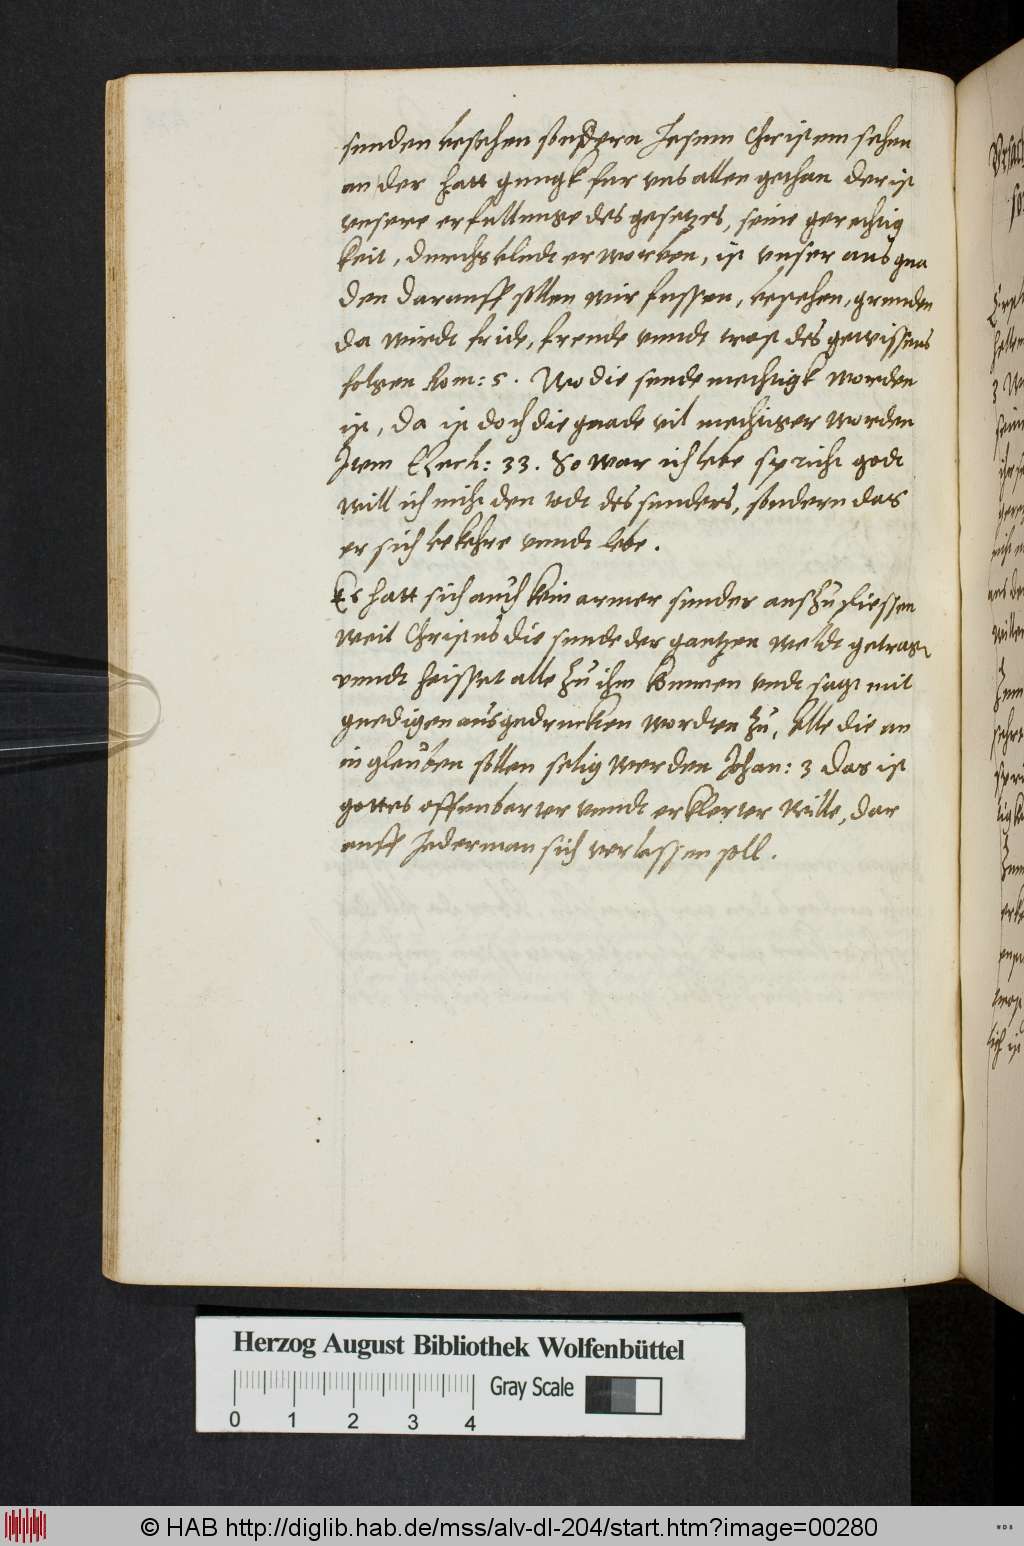 sunden besehen sondern Jesum Christum sehen
an der hatt gnugk fur uns allen gethan der ist
unsere erfullunge des gesetzes, seine gerechtig
keit, durchs bludt erworben, ist unser aus gna
den darauff sollen wir fussen, besehen, grunden
da wirdt fride, freude unndt trost des gewissens
folgen Rom: 5. Wo die sunde mechtigk worden
ist, da ist doch die gnade vil mechtiger worden
Item Ezech: 33. So war ich lebe spricht godt
will ich nicht den todt des sunders, sondern das
er sich bekehre unndt lebe.
Es hatt sich auch kein armer sunder auszuschliessen
weil Christus die sunde der gantzen weldt getrag
unndt heisset alle zu ihm kommen undt sagt mit
gnedigen ausgedruckten wordten zu, Alle die an
in gleuben sollen selig werden Johan: 3 das ist
gottes offenbarter unndt erklerter wille, dar
auff Jederman sich verlassen soll.
Herzog August Bibliothek Wolfenbüttel
Gray Scale
0 1 2 3 4
© HAB http://diglib.hab.de/mss/alv-dl-204/start.htm?image=00280